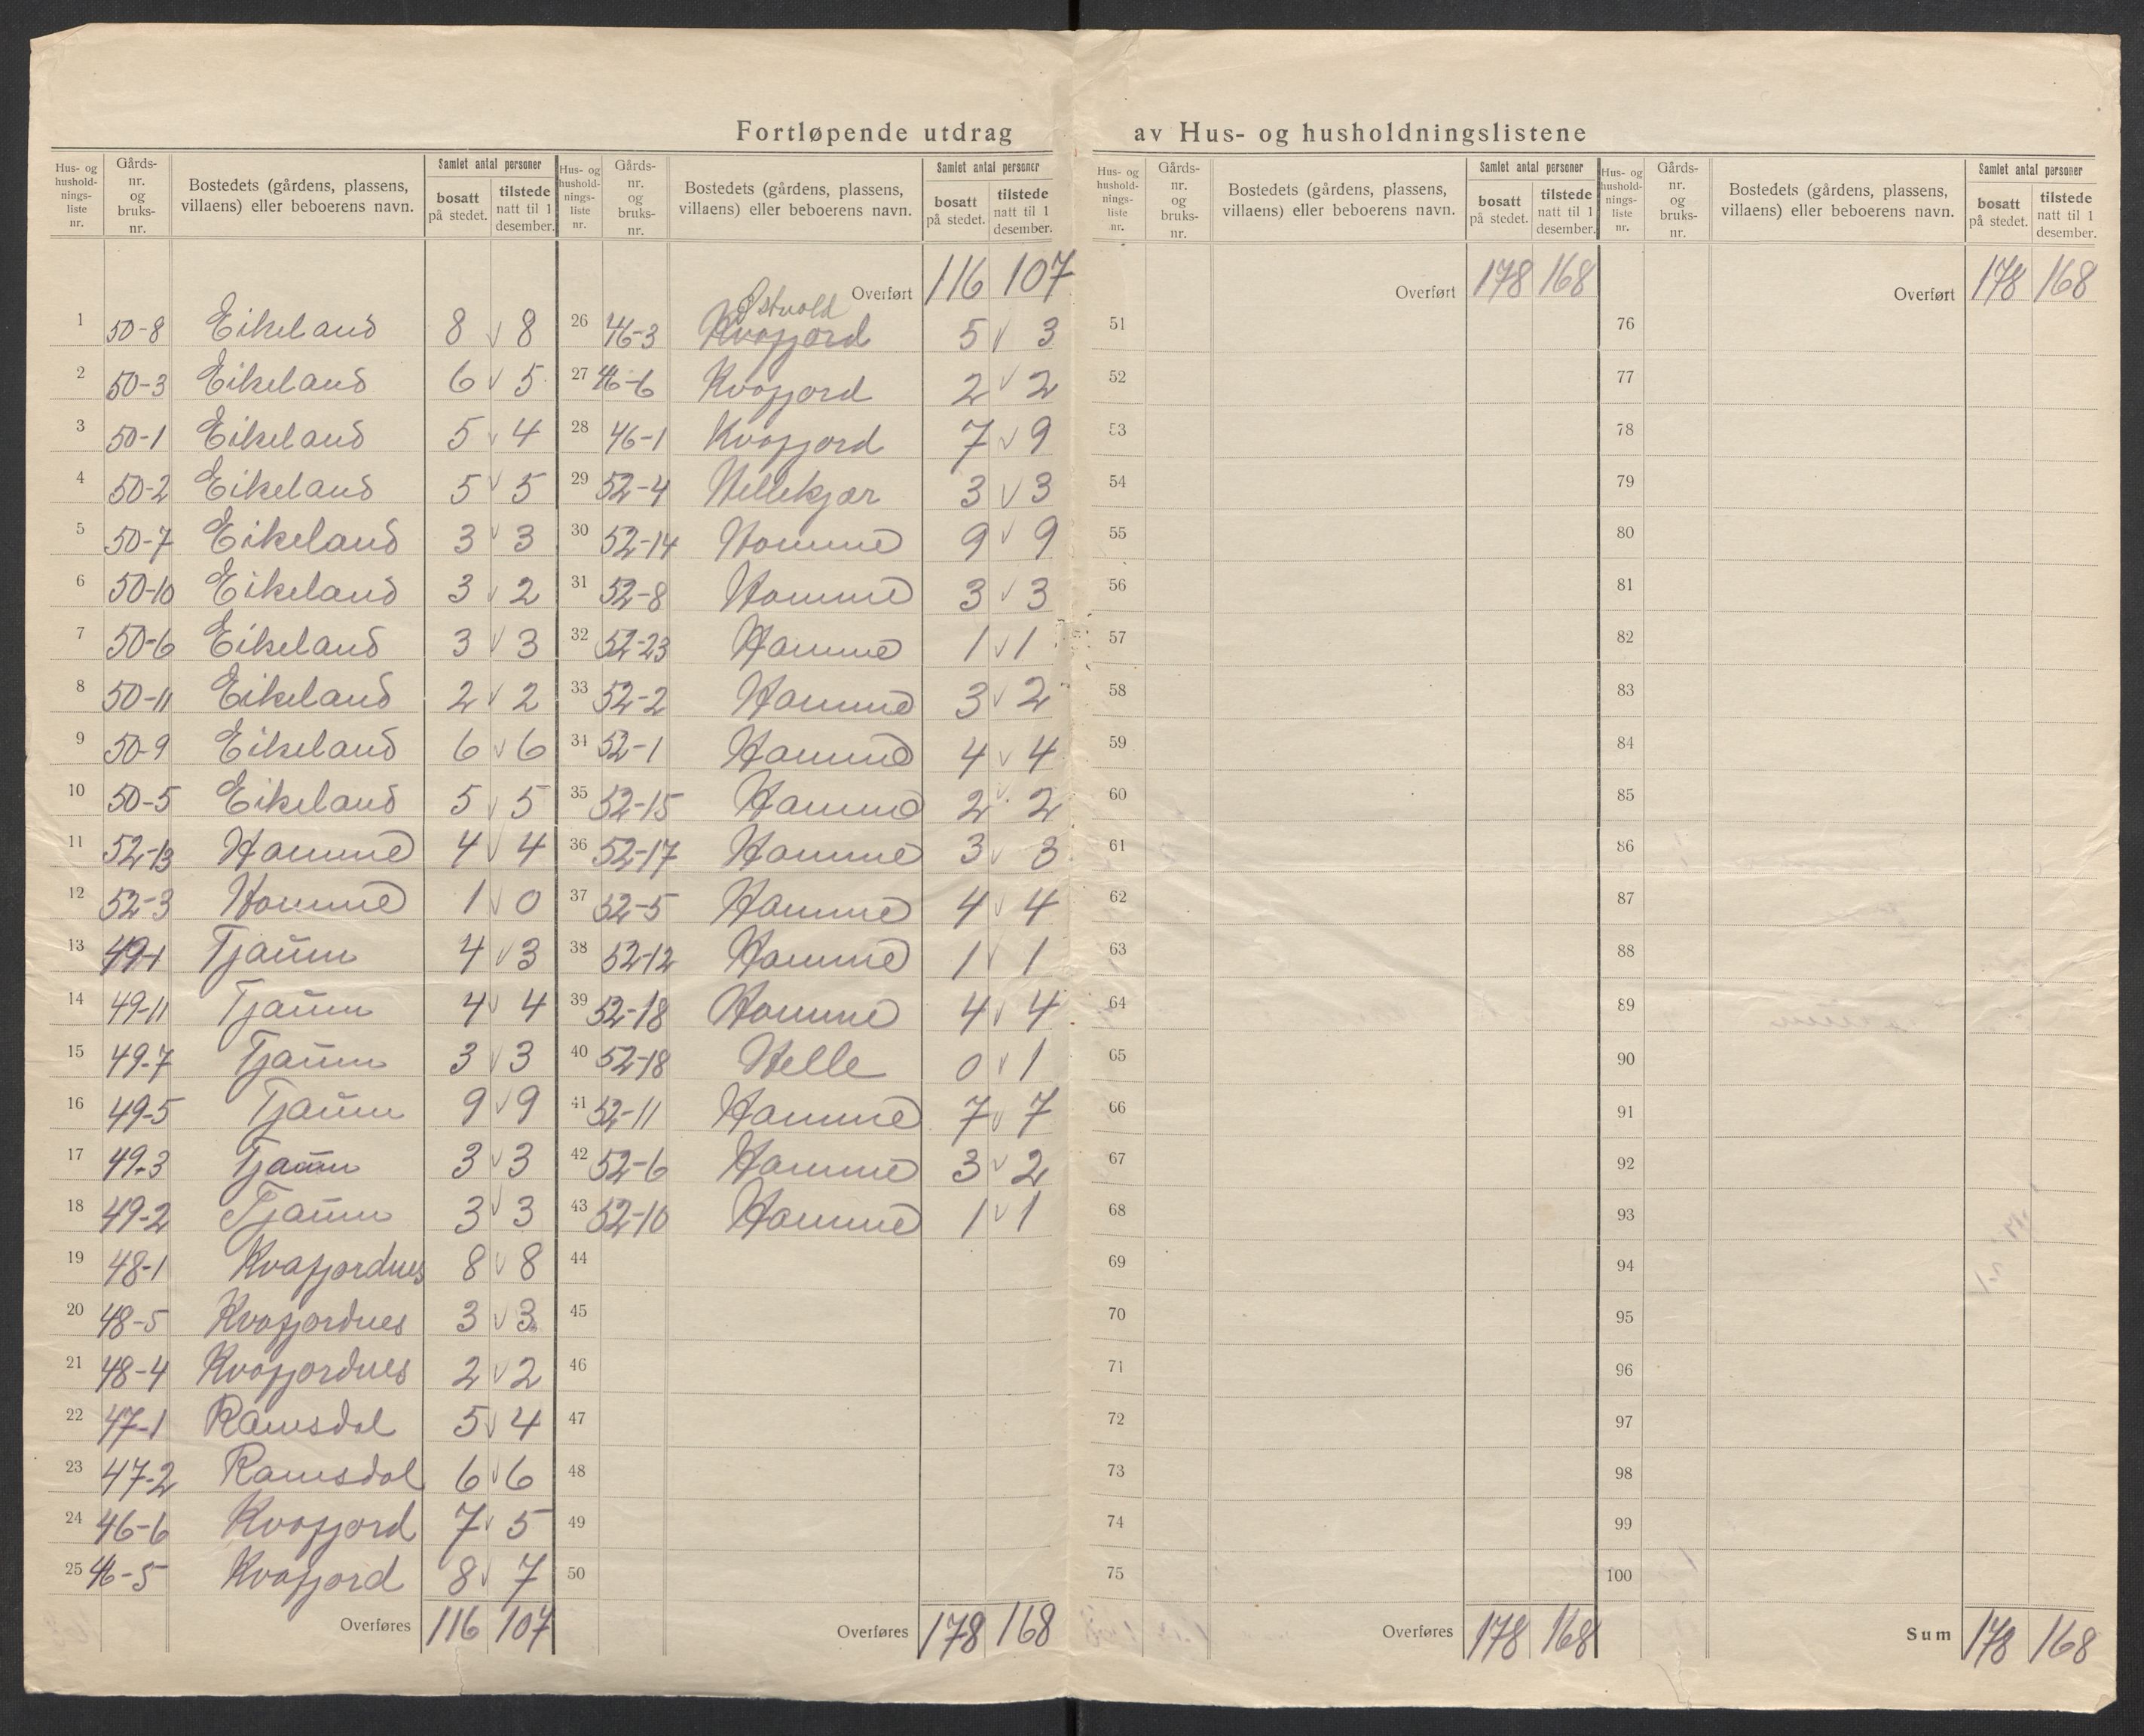 Fortløpende utdrag av Hus- og husholdningslistene
Hus- og hushold-nings-liste nr. | Gårds-nr. og bruks-nr. | Bostedets (gårdens, plassens, villaens) eller beboerens navn. | Samlet antal personer | bosatt på stedet. | tilstede natt til 1 desember.
1 50-8 Eikeland 8 v 8
2 50-3 Eikeland 6 v 5
3 50-1 Eikeland 5 v 4
4 50-2 Eikeland 5 v 5
5 50-7 Eikeland 3 v 3
6 50-10 Eikeland 3 v 2
7 50-6 Eikeland 3 v 3
8 50-11 Eikeland 2 v 2
9 50-9 Eikeland 6 v 6
10 50-5 Eikeland 5 v 5
11 52-13 Homme 4 v 4
12 52-3 Homme 1 v 0
13 49-1 Tjaum 4 v 3
14 49-11 Tjaum 4 v 4
15 49-7 Tjaum 3 v 3
16 49-5 Tjaum 9 v 9
17 49-3 Tjaum 3 v 3
18 49-2 Tjaum 3 v 3
19 48-1 Kvafjordnes 8 v 8
20 48-5 Kvafjordnes 3 v 3
21 48-4 Kvafjordnes 2 v 2
22 47-1 Ramsdal 5 v 4
23 47-2 Ramsdal 6 v 6
24 46-6 Kvafjord 7 v 5
25 46-5 Kvafjord 8 v 7
Overføres 116 107
Hus- og hushold-nings-liste nr. | Gårds-nr. og bruks-nr. | Bostedets (gårdens, plassens, villaens) eller beboerens navn. | Samlet antal personer | bosatt på stedet. | tilstede natt til 1 desember.
Overført 116 107
26 46-3 Kvafjord 5 v 3
27 46-6 Kvafjord 2 v 2
28 46-1 Kvafjord 7 v 9
29 52-4 Hellekjær 3 v 3
30 52-14 Homme 9 v 9
31 52-8 Homme 3 v 3
32 52-23 Homme 1 v 1
33 52-2 Homme 3 v 2
34 52-1 Homme 4 v 4
35 52-15 Homme 2 v 2
36 52-17 Homme 3 v 3
37 52-5 Homme 4 v 4
38 52-12 Homme 1 v 1
39 52-18 Homme 4 v 4
40 52-18 Helle 0 v 1
41 52-11 Homme 7 v 7
42 52-6 Homme 3 v 2
43 52-10 Homme 1 v 1
44
45
46
47
48
49
50
Overføres 178 168
Hus- og hushold-nings-liste nr. | Gårds-nr. og bruks-nr. | Bostedets (gårdens, plassens, villaens) eller beboerens navn. | Samlet antal personer | bosatt på stedet. | tilstede natt til 1 desember.
Overført 178 168
51
52
53
54
55
56
57
58
59
60
61
62
63
64
65
66
67
68
69
70
71
72
73
74
75
Overføres 178 168
Hus- og hushold-nings-liste nr. | Gårds-nr. og bruks-nr. | Bostedets (gårdens, plassens, villaens) eller beboerens navn. | Samlet antal personer | bosatt på stedet. | tilstede natt til 1 desember.
Overført 178 168
76
77
78
79
80
81
82
83
84
85
86
87
88
89
90
91
92
93
94
95
96
97
98
99
100
Sum 178 168